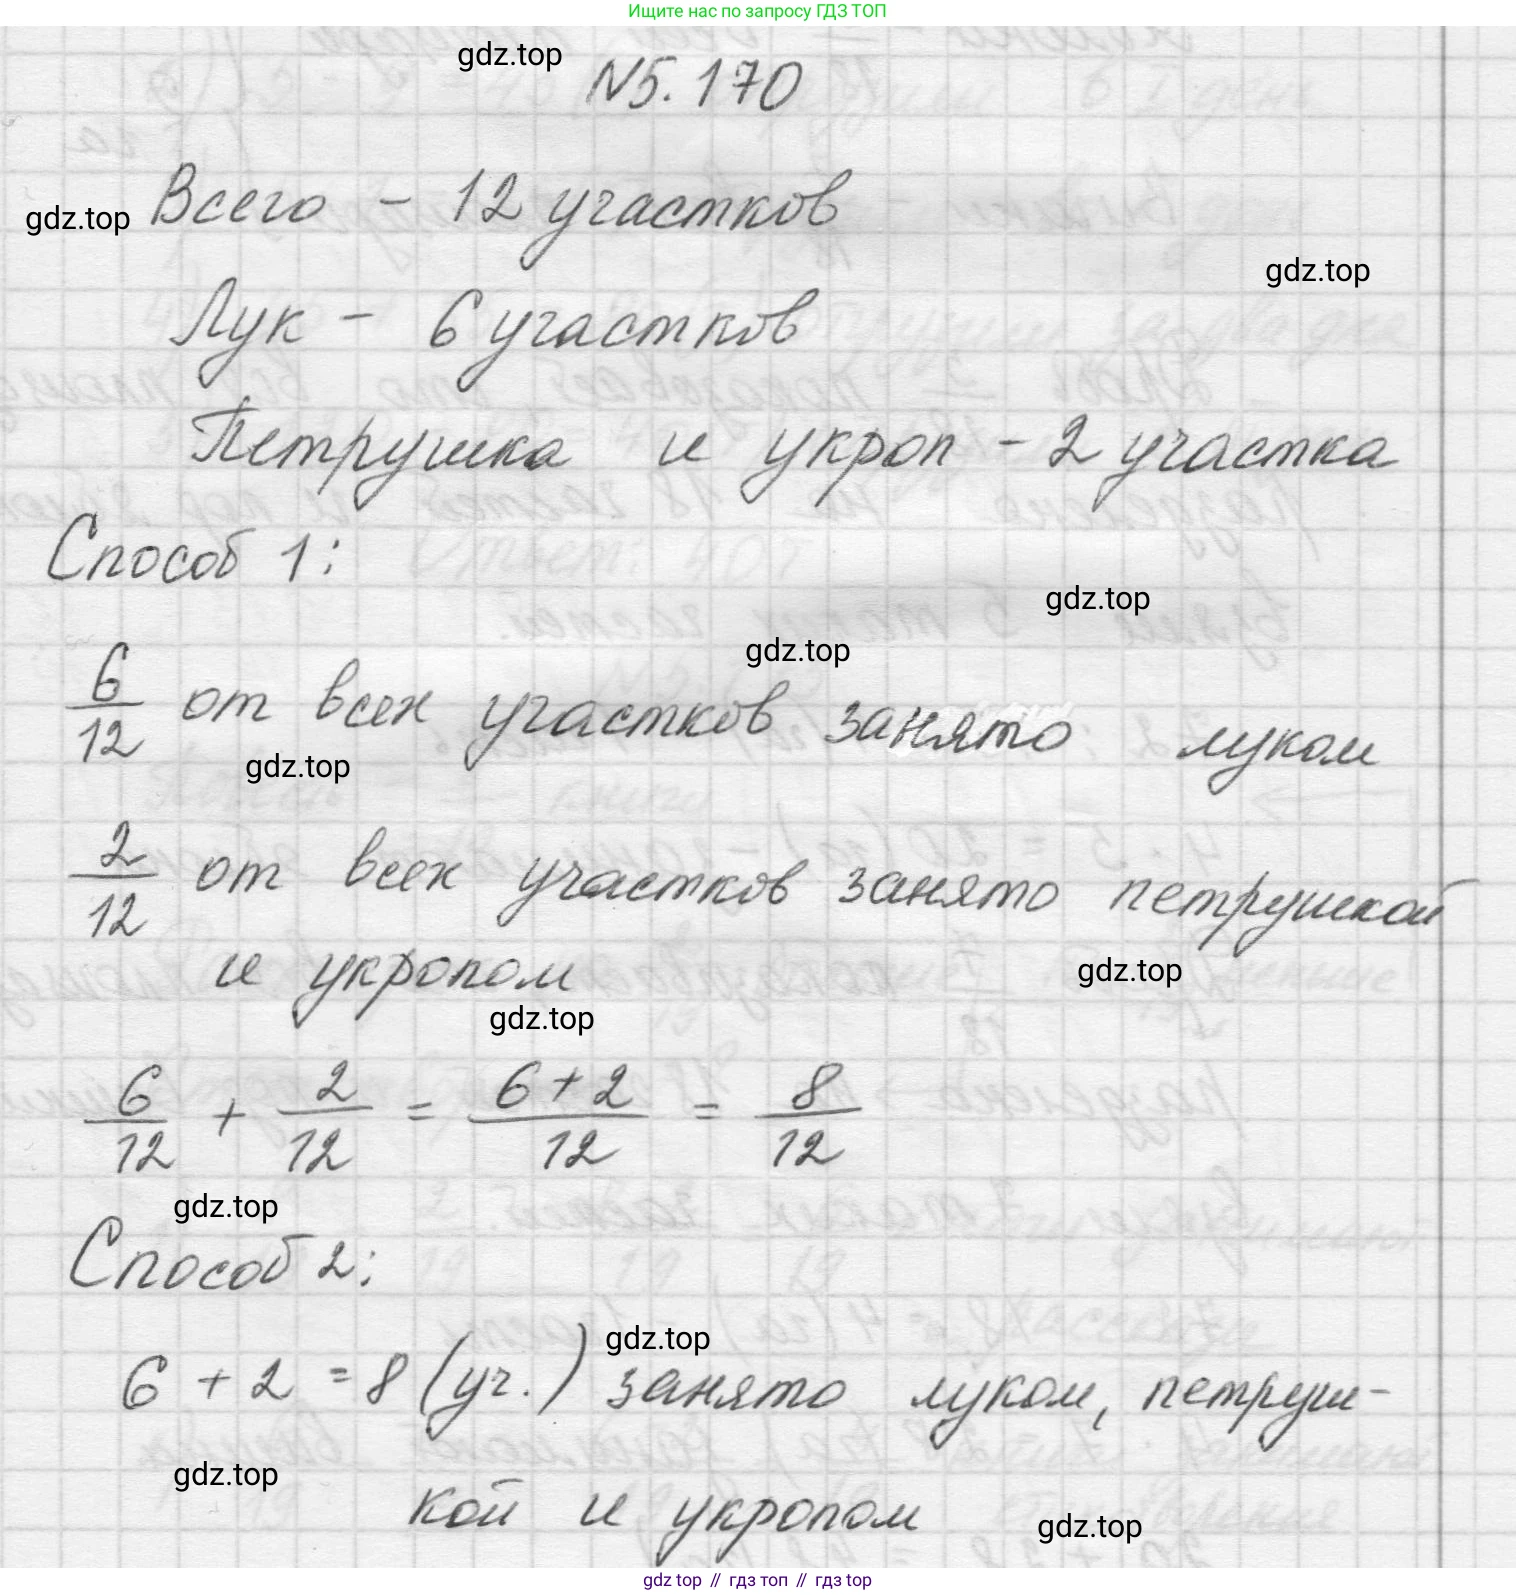 Ищите нас по запросу ГДЗ ТОП
gdz.top
№5.170
gdz.top Всего - 12 участков
gdz.top
Лук - 6 участков
Петрушка и укроп - 2 участка
Способ 1:
gdz.top
gdz.top
6/12 от всех участков занято луком
gdz.top
2/12 от всех участков занято петрушкой
и укропом
gdz.top
gdz.top
6/12 + 2/12 = (6+2)/12 = 8/12
gdz.top
Способ 2:
gdz.top
6 + 2 = 8 (уч.) занято луком, петруш-
gdz.top
кой и укропом
gdz.top
gdz top // гдз топ // гдз top